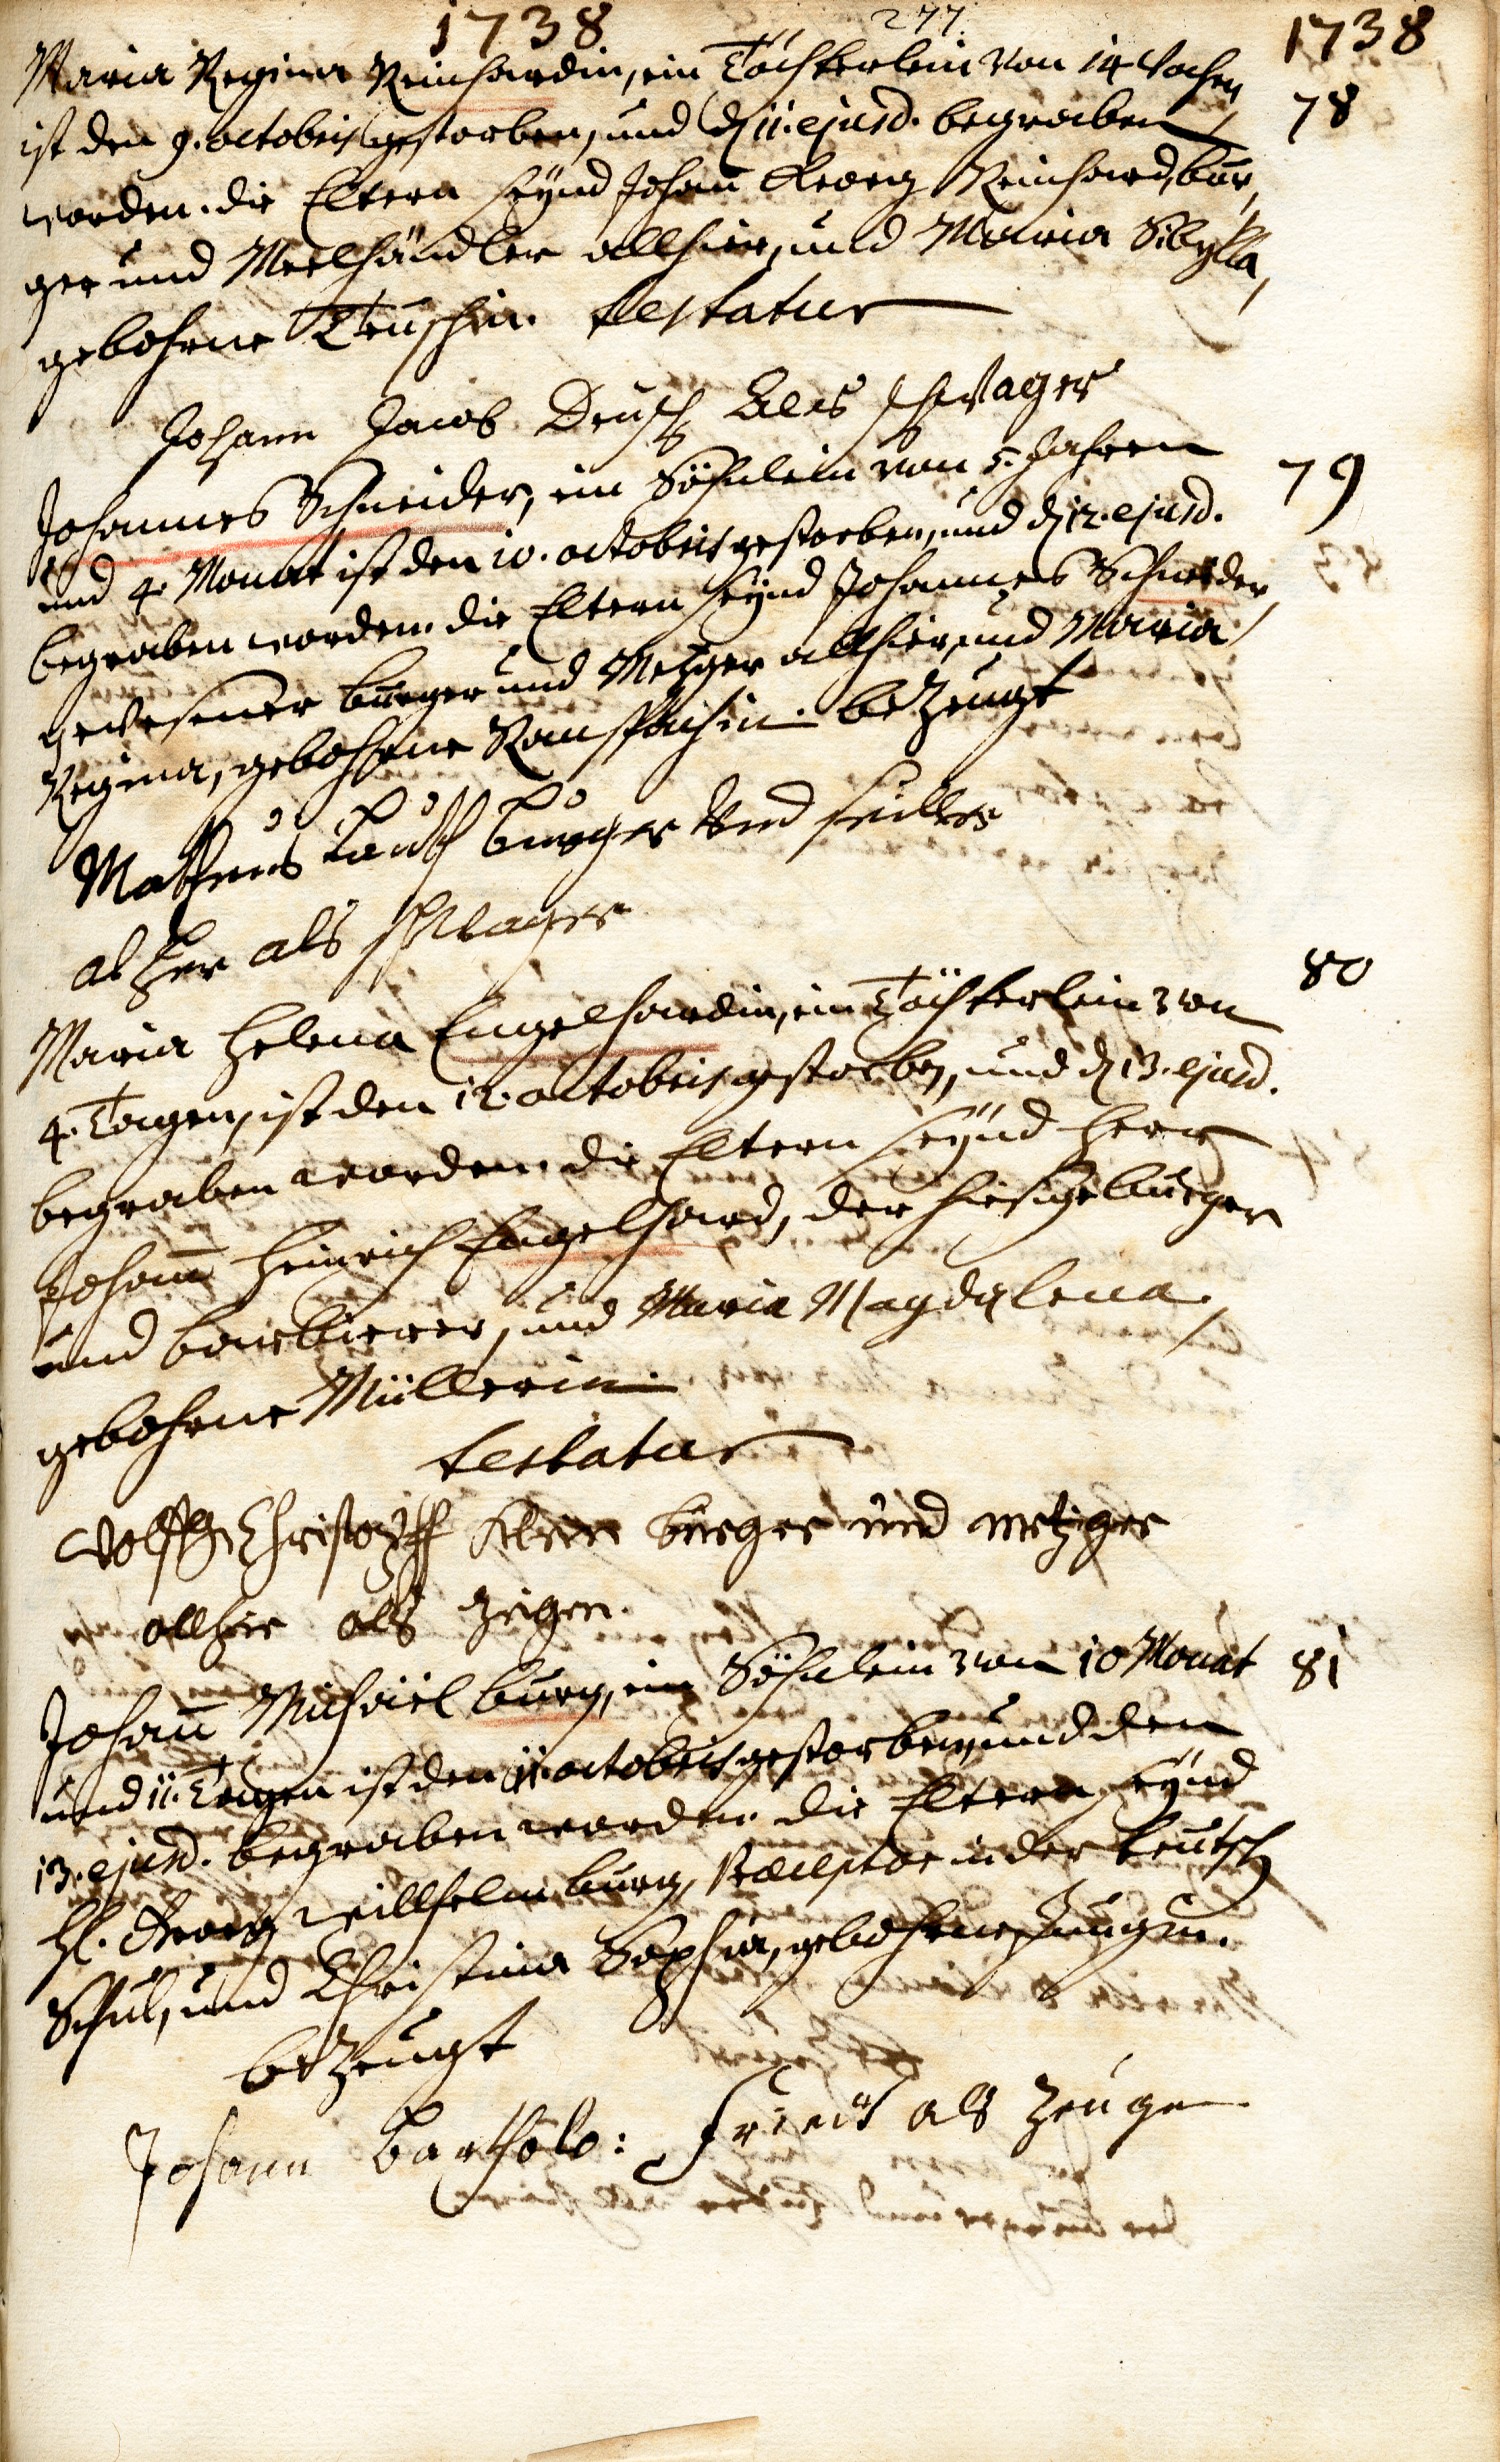 1738 277. 1738
Maria Regina Reinhardin, ein Töchterlein von 14 Wochen 78
ist den 9. octobris gestorben, und d 11. ejusd. begraben
worden. die Eltern seynd Johann Georg Reinhard, bur,
ger und Meelhändler allhier, und Maria Sibylla,
gebohrne Teuschin. testatur
Johann Jacob Deusch als schwager
Johannes Schneider, ein Söhnlein von 5. Jahren 79
und 4. Monat ist den 10. octobris gestorben, und d 12. ejusd.
begraben worden. die Eltern seynd Johannes Schneider,
gewesener burger und Metzger allhier, und Maria
Regina, gebohrne. bezeugt
Matheus Lauth burger und
alhier als schwager
Maria Helena Engelhardin, ein Töchterlein von 80
4. Tagen, ist den 12. octobris gestorben, und d 13. ejusd.
begraben worden. die Eltern seynd Herr
Johann Heinrich Engelhard, der hiesige burger
und barbierer, und Maria Magdalena,
gebohrne Müllerin.
testatur
Wolff Christoph burger und metzger
allhie als zeigen.
Johann Michael burg, ein Söhnlein von 10 Monat 81
und 11. Tagen ist den 11. octobris gestorben, und den
13. ejusd. begraben worden. die Eltern seynd
H. Georg Willhelm burg, Præceptor in der teutsch
Schul, und Christina Sophia, gebohrne Jungin.
bezeugt
Johann Bartholo: Frieß als zeuge